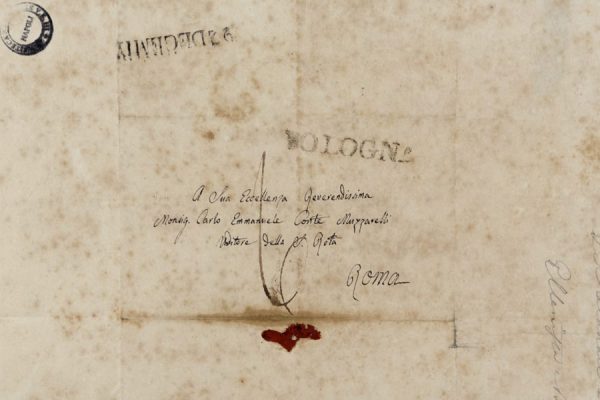 NAPOLI
DECEMB
BOLOGNA
A Sua Eccellenza Reverendissima
Monsig. Carlo Emmanuele Conte Muzzarelli
Uditore della S. Rota
Roma